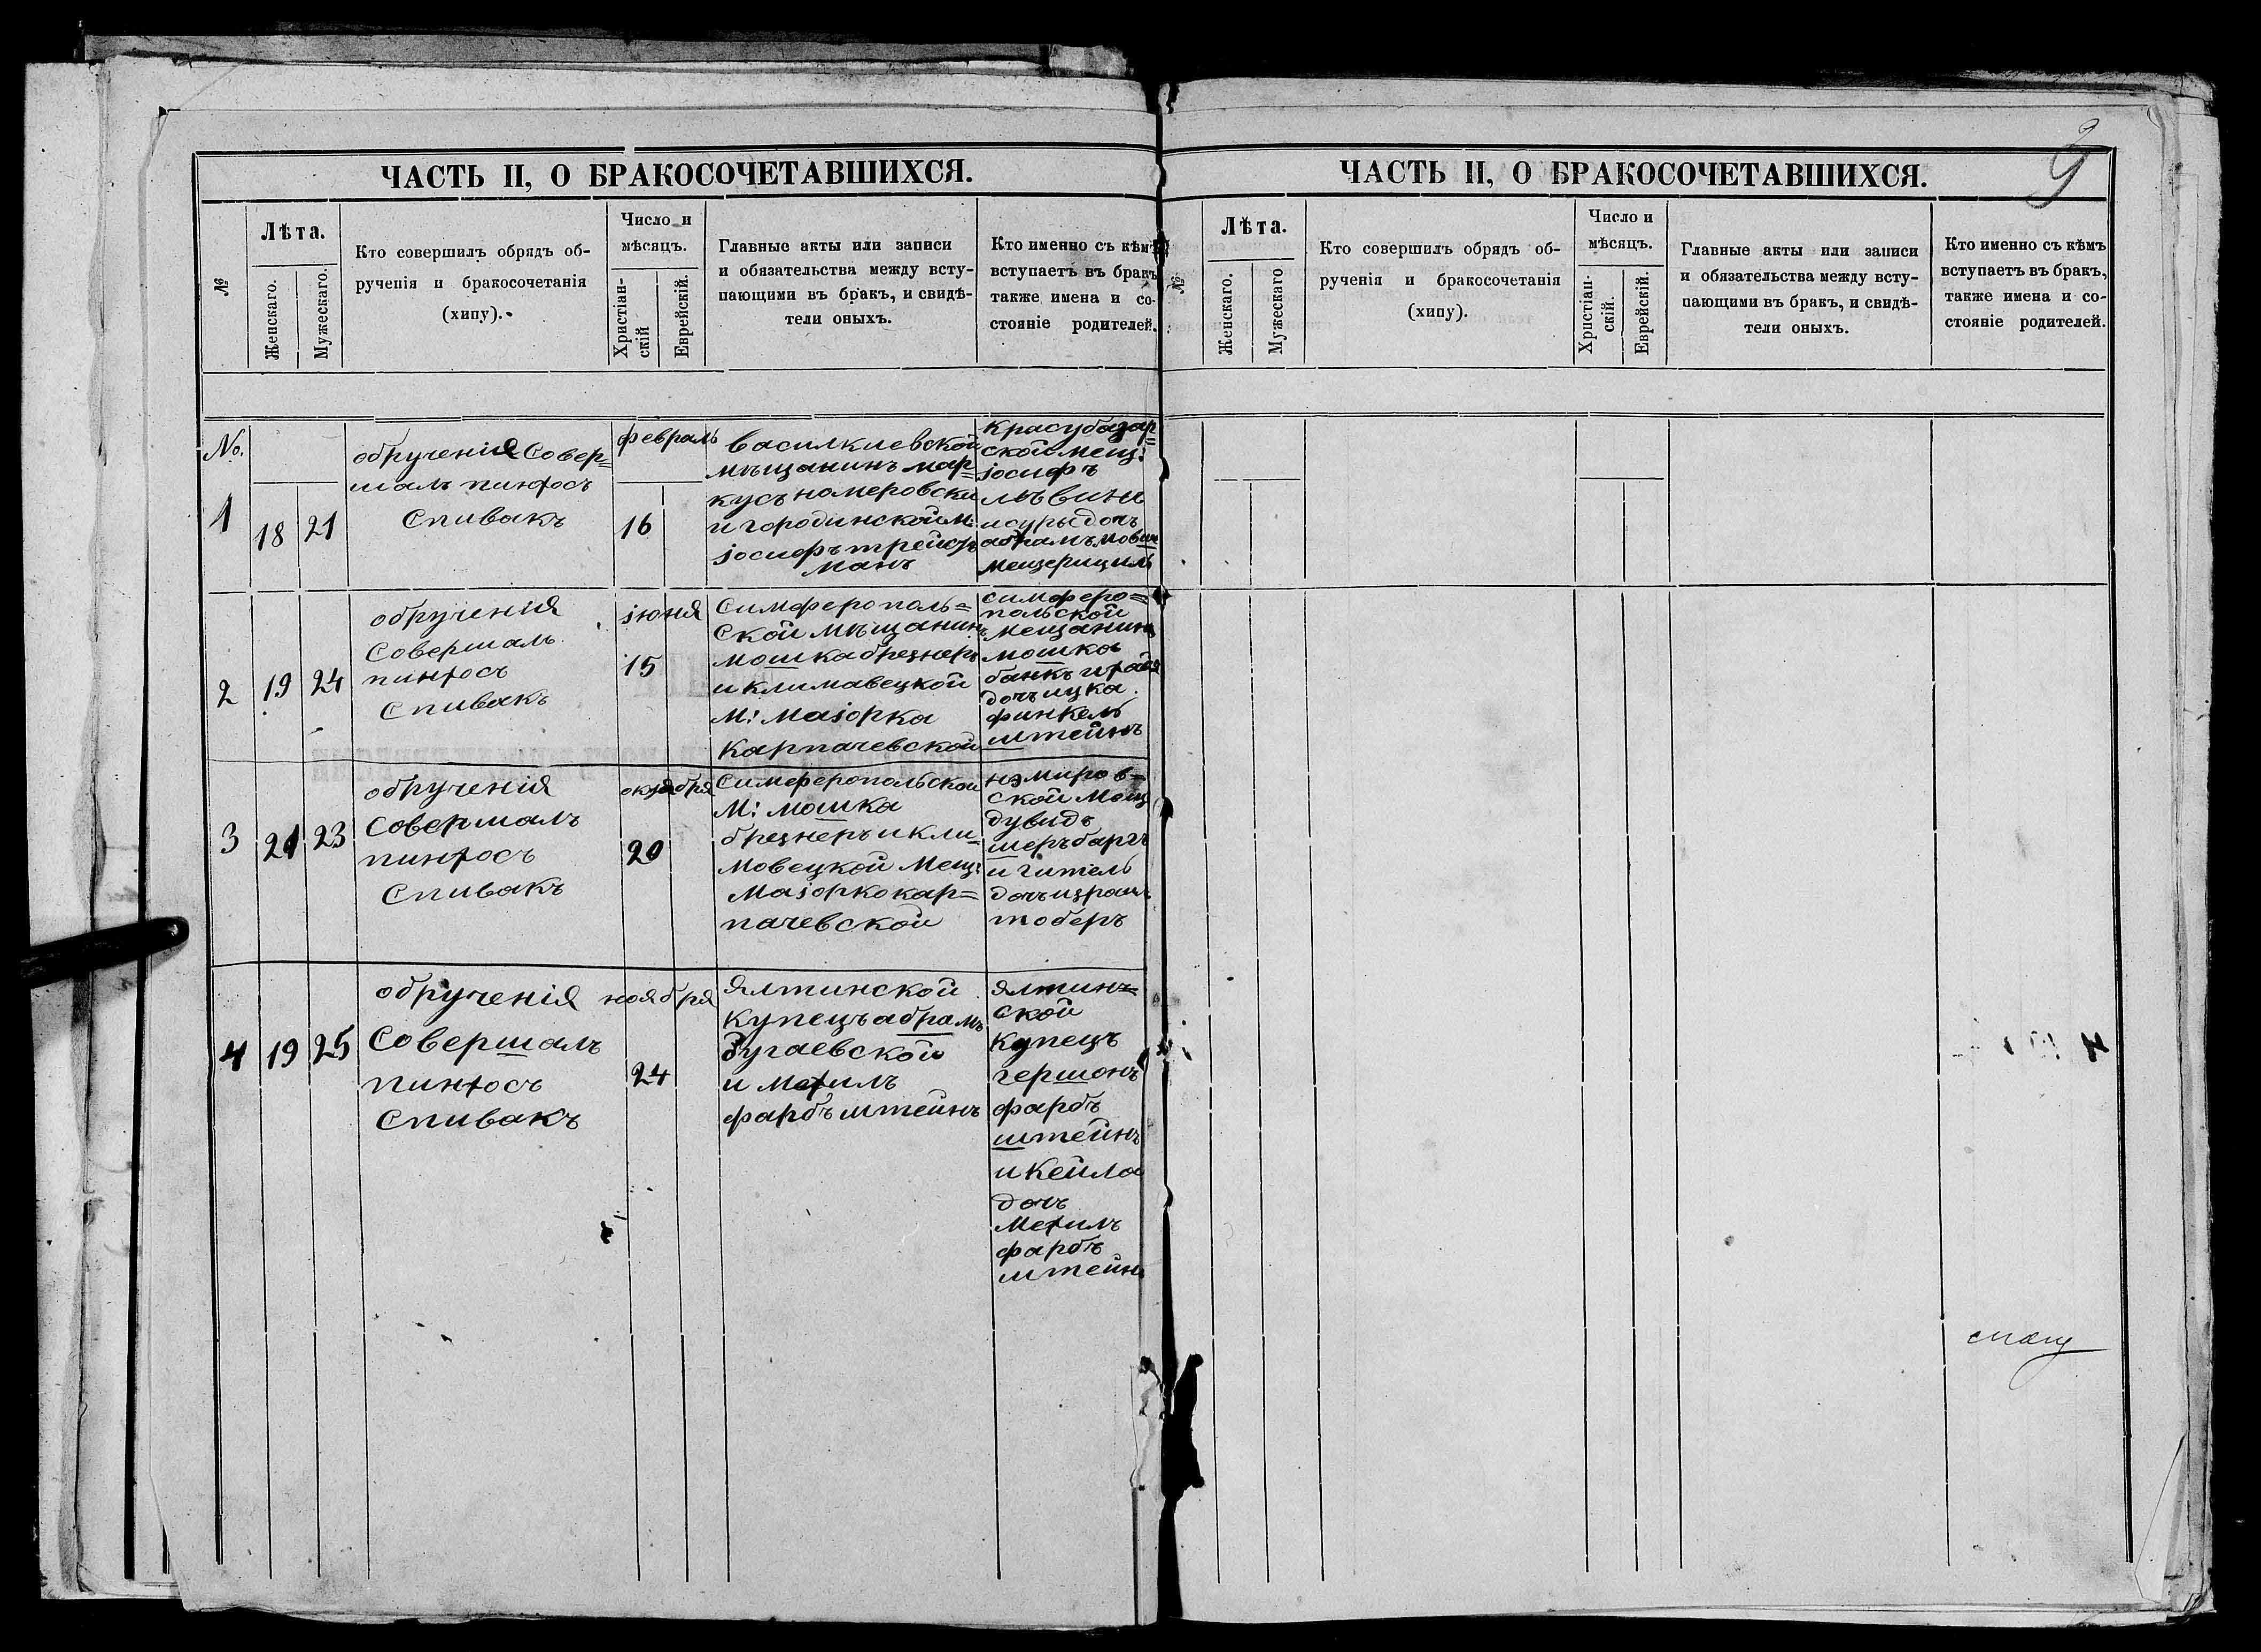 ЧАСТЬ II, О БРАКОСОЧЕТАВШИХСЯ.
№
Лѣта.
Женскаго.
Мужескаго.
Кто совершилъ обрядъ об-
рученія и бракосочетанія
(хипу).
Число и
мѣсяцъ.
Христіан-
скій
Еврейскій.
Главные акты или записи
и обязательства между всту-
пающими въ бракъ, и свидѣ-
тели оныхъ.
Кто именно съ кѣмъ
вступаетъ въ бракъ
также имена и со-
стояніе родителей.
No.
1
18
21
обрученія Совер=
шалъ пинхосъ
Спивакъ
февраль
16
василкиевской
мѣщанинъ мар=
кусъ номеровски
и городинской м:
јосифъ трейстъ
манъ
красубазар=
ской мещ:
јосифъ
лѣвинъ
и суры дочъ
абрамъ мовш
мещерициль
2
19
24
обрученія
Совершалъ
пинхосъ
Спивакъ
јюня
15
Симферополь=
ской мѣщанинъ
мошка брезнеръ
и климавецкой
м: маjорка
карпачевской
симферо=
польской
мещанинъ
мошка
банкъ и
дочъ ицка
финкель
штейнъ
3
21
23
обрученія
Совершалъ
пинхосъ
Спивакъ
октября
20
Симферопольской
м: мошка
брезнеръ и кли=
мовецкой мещ:
маjорко кар=
пачевской
нэмиров=
ской мещ
дувидъ
шеръбаргъ
и гитель
дочъ израиль
тоберъ
4
19
25
обрученія
Совершалъ
пинхосъ
Спивакъ
ноября
24
Ялтинской
купецъ абрамъ
дугаевской
и мехилъ
фарбъштейнъ
ялтинъ=
ской
купецъ
гершонъ
фарбъ
штейнъ
и кейла
дочъ
мехилъ
фарбъ
штейнъ
9
ЧАСТЬ II, О БРАКОСОЧЕТАВШИХСЯ.
№
Лѣта.
Женскаго.
Мужескаго
Кто совершилъ обрядъ об-
рученія и бракосочетанія
(хипу).
Число и
мѣсяцъ.
Христіан-
скій.
Еврейскій.
Главные акты или записи
и обязательства между всту-
пающими въ бракъ, и свидѣ-
тели оныхъ.
Кто именно съ кѣмъ
вступаетъ въ бракъ,
также имена и со-
стояніе родителей.